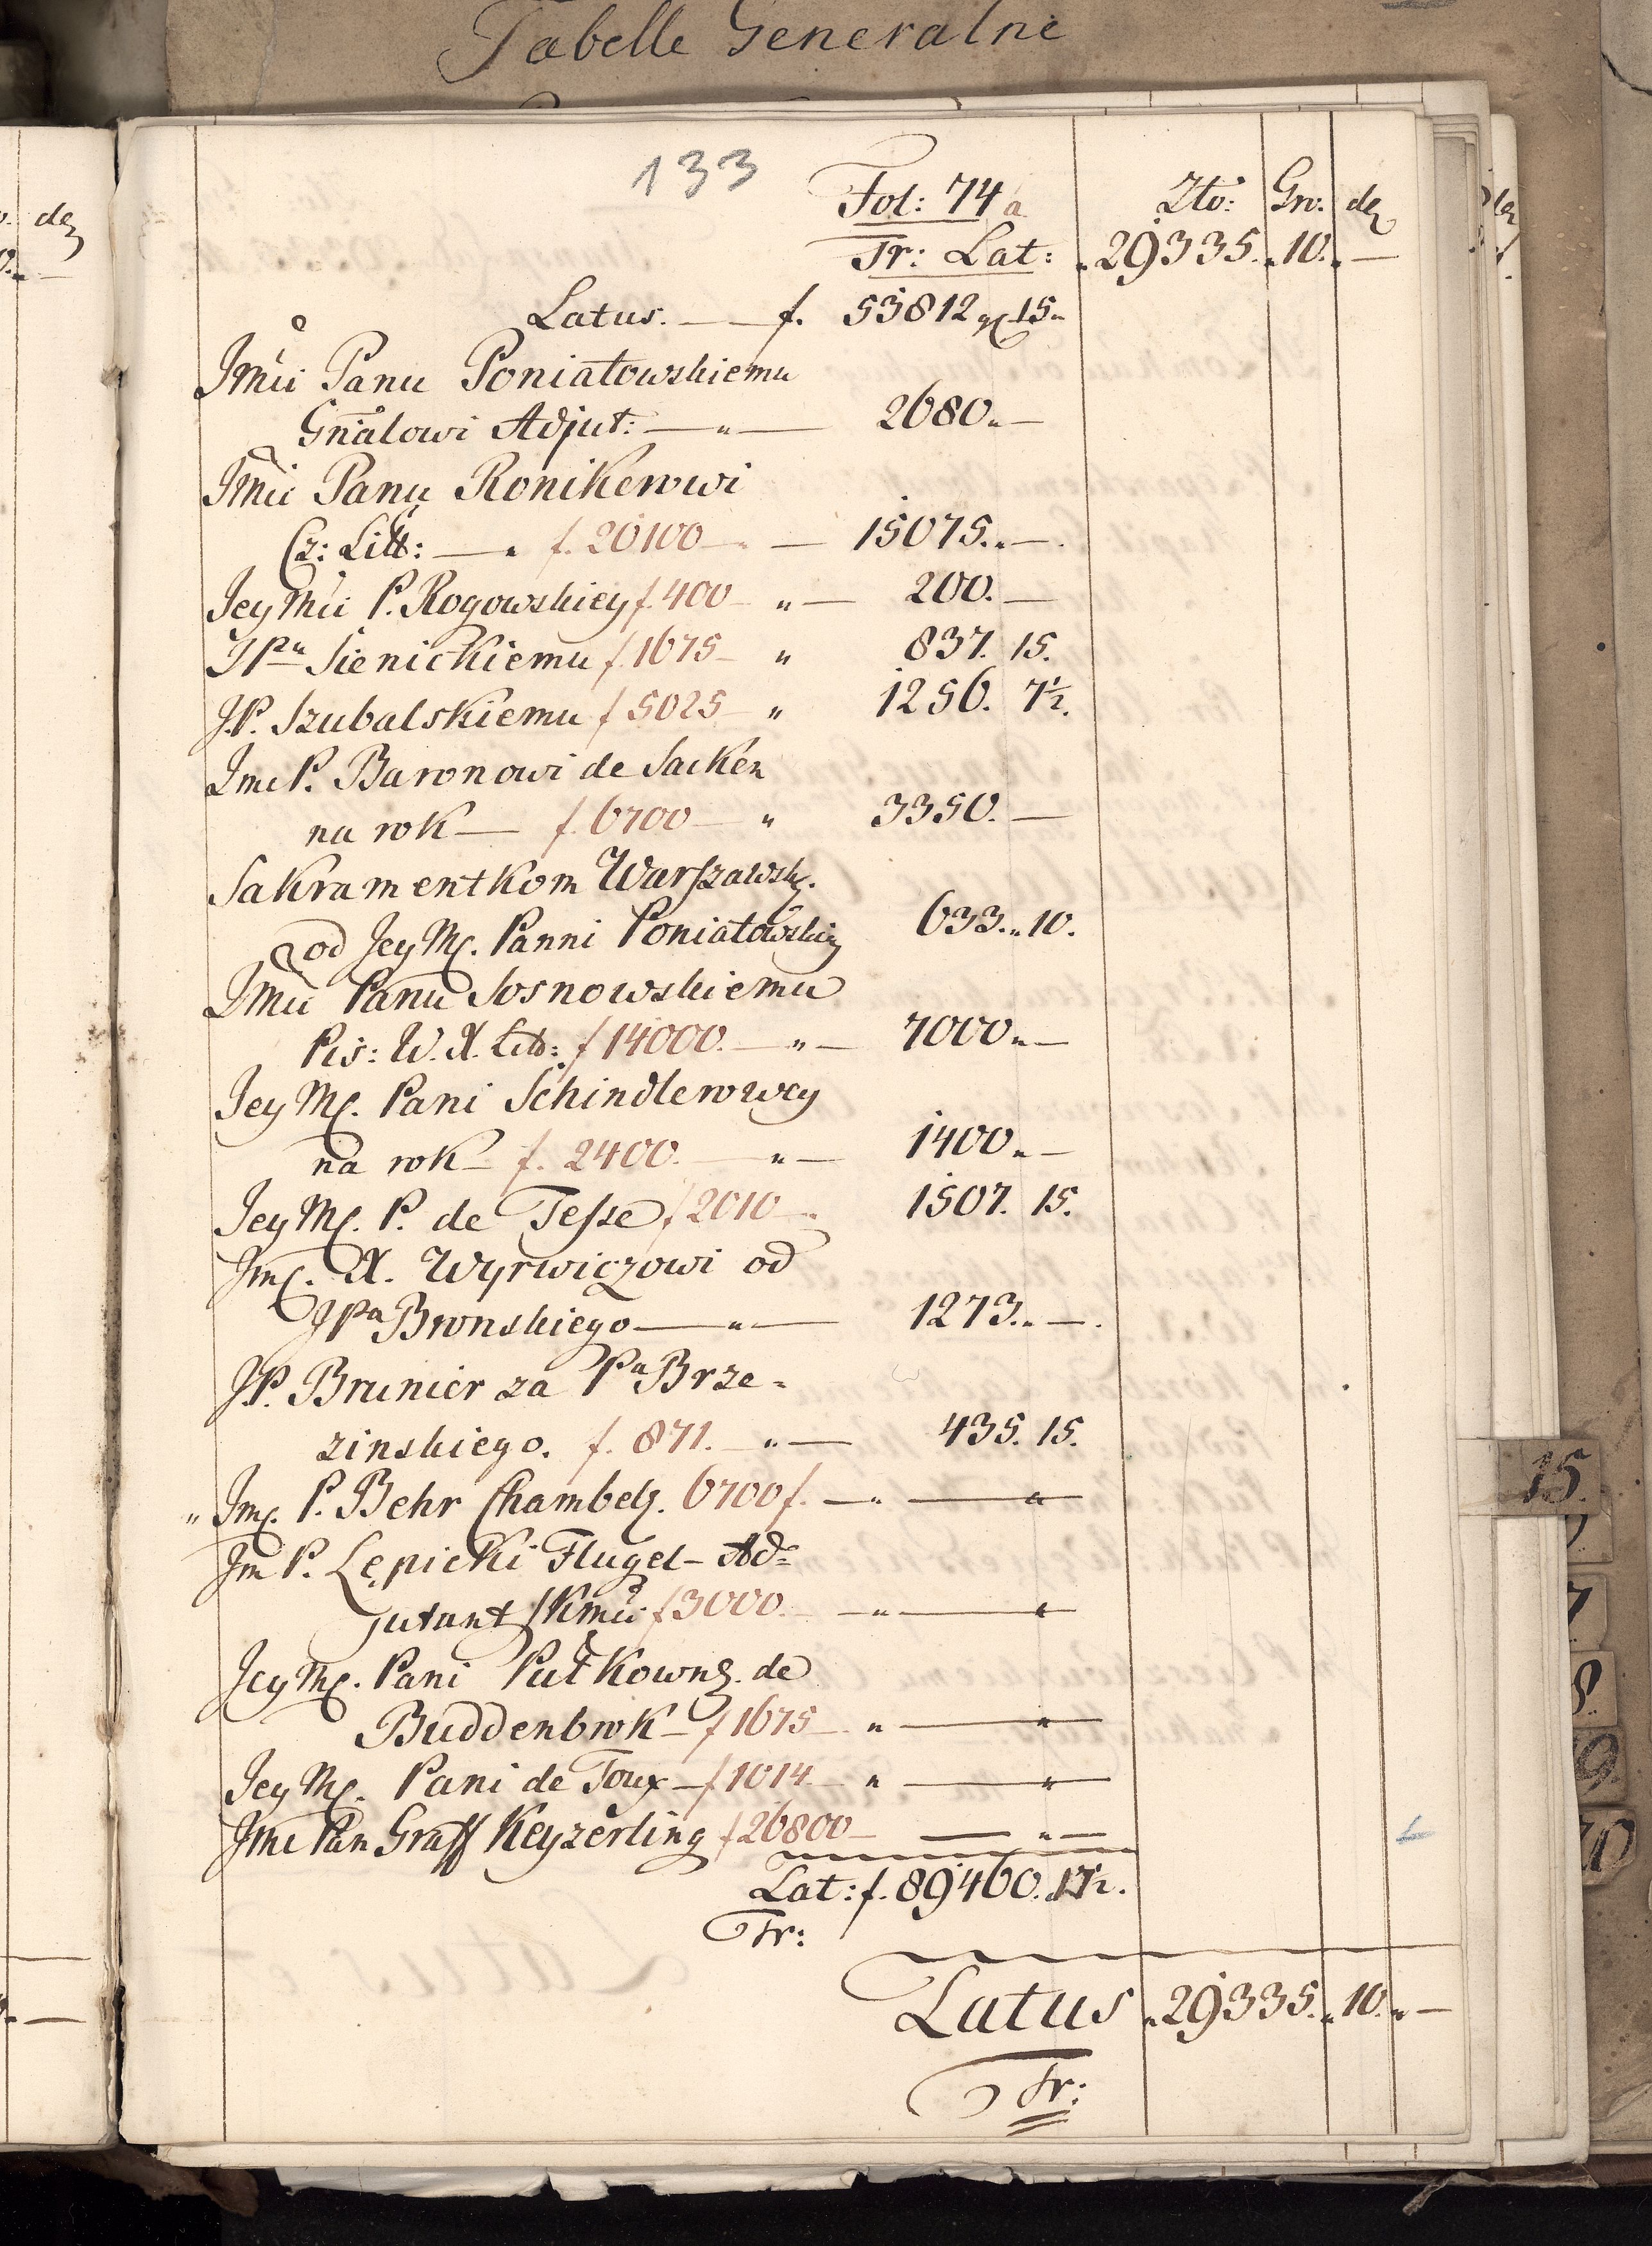 Tabelle Generalne
133
Fol: 74 a Zło: Gro. de
Tr: Lat: „29335.„10.„—
Latus. — f. 53812 gl 15„
Jmu Panu Poniatowskiemu
Gnałowi Adjut: —„— 2680.„—
Jmu Panu Ronikerowi
Cz: Litt: —„ f. 20100 — 15075.„—.
Jey Mu P. Rogowskiey f. 400 „— 200. —
JPu Sienickiemu f. 1675 „ 837. 15.
J.P. Szubalskiemu f 5025 „ 1256. 7½.
Jmc P. Baronowi de Sacken
na rok — f. 6700 „ 3350. —
Sakramentkom Warszawsk.
od Jey Mc. Panni Poniatowskiey 633.„10.
Jmu Panu Sosnowskiemu
Pis: W. X. Litt: f 14000. —„— 7000„—
Jey Mc. Pani Schindlerowey
na rok f. 2400. —„— 1400„—
Jey Mc. P. de Tesse f 2010 1507. 15.
Jmc. X. Wyrwiczowi od
JPa Bronskiego —„— 1273.„—.
J.P. Brunier za Pa Brze=
zinskiego. f. 871. „— 435. 15.
„ Jmc. P. Behr Chambel. 6700 f. —„ —„—
Jm P. Lępicki Flugel-Ad=
jutant JKmu f 3000. —„—„—
Jey Mc. Pani Pułkown. de
Buddenbrok f 1675 „ —„—
Jey Mc. Pani de Toux f 1014 „ —„—
Jmc Pan Graff Keyzerling f 26800 — —„—
Lat: f. 89460. 17½.
Tr:
Latus „29335.„10.„—
Tr:
15.